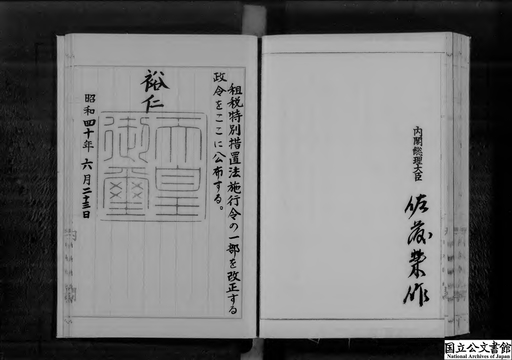 租税特別措置法施行令の一部を改正する
政令をここに公布する。
裕仁
天皇
御璽
昭和四十年六月二十三日
内閣総理大臣
佐藤榮作
国立公文書館
National Archives of Japan